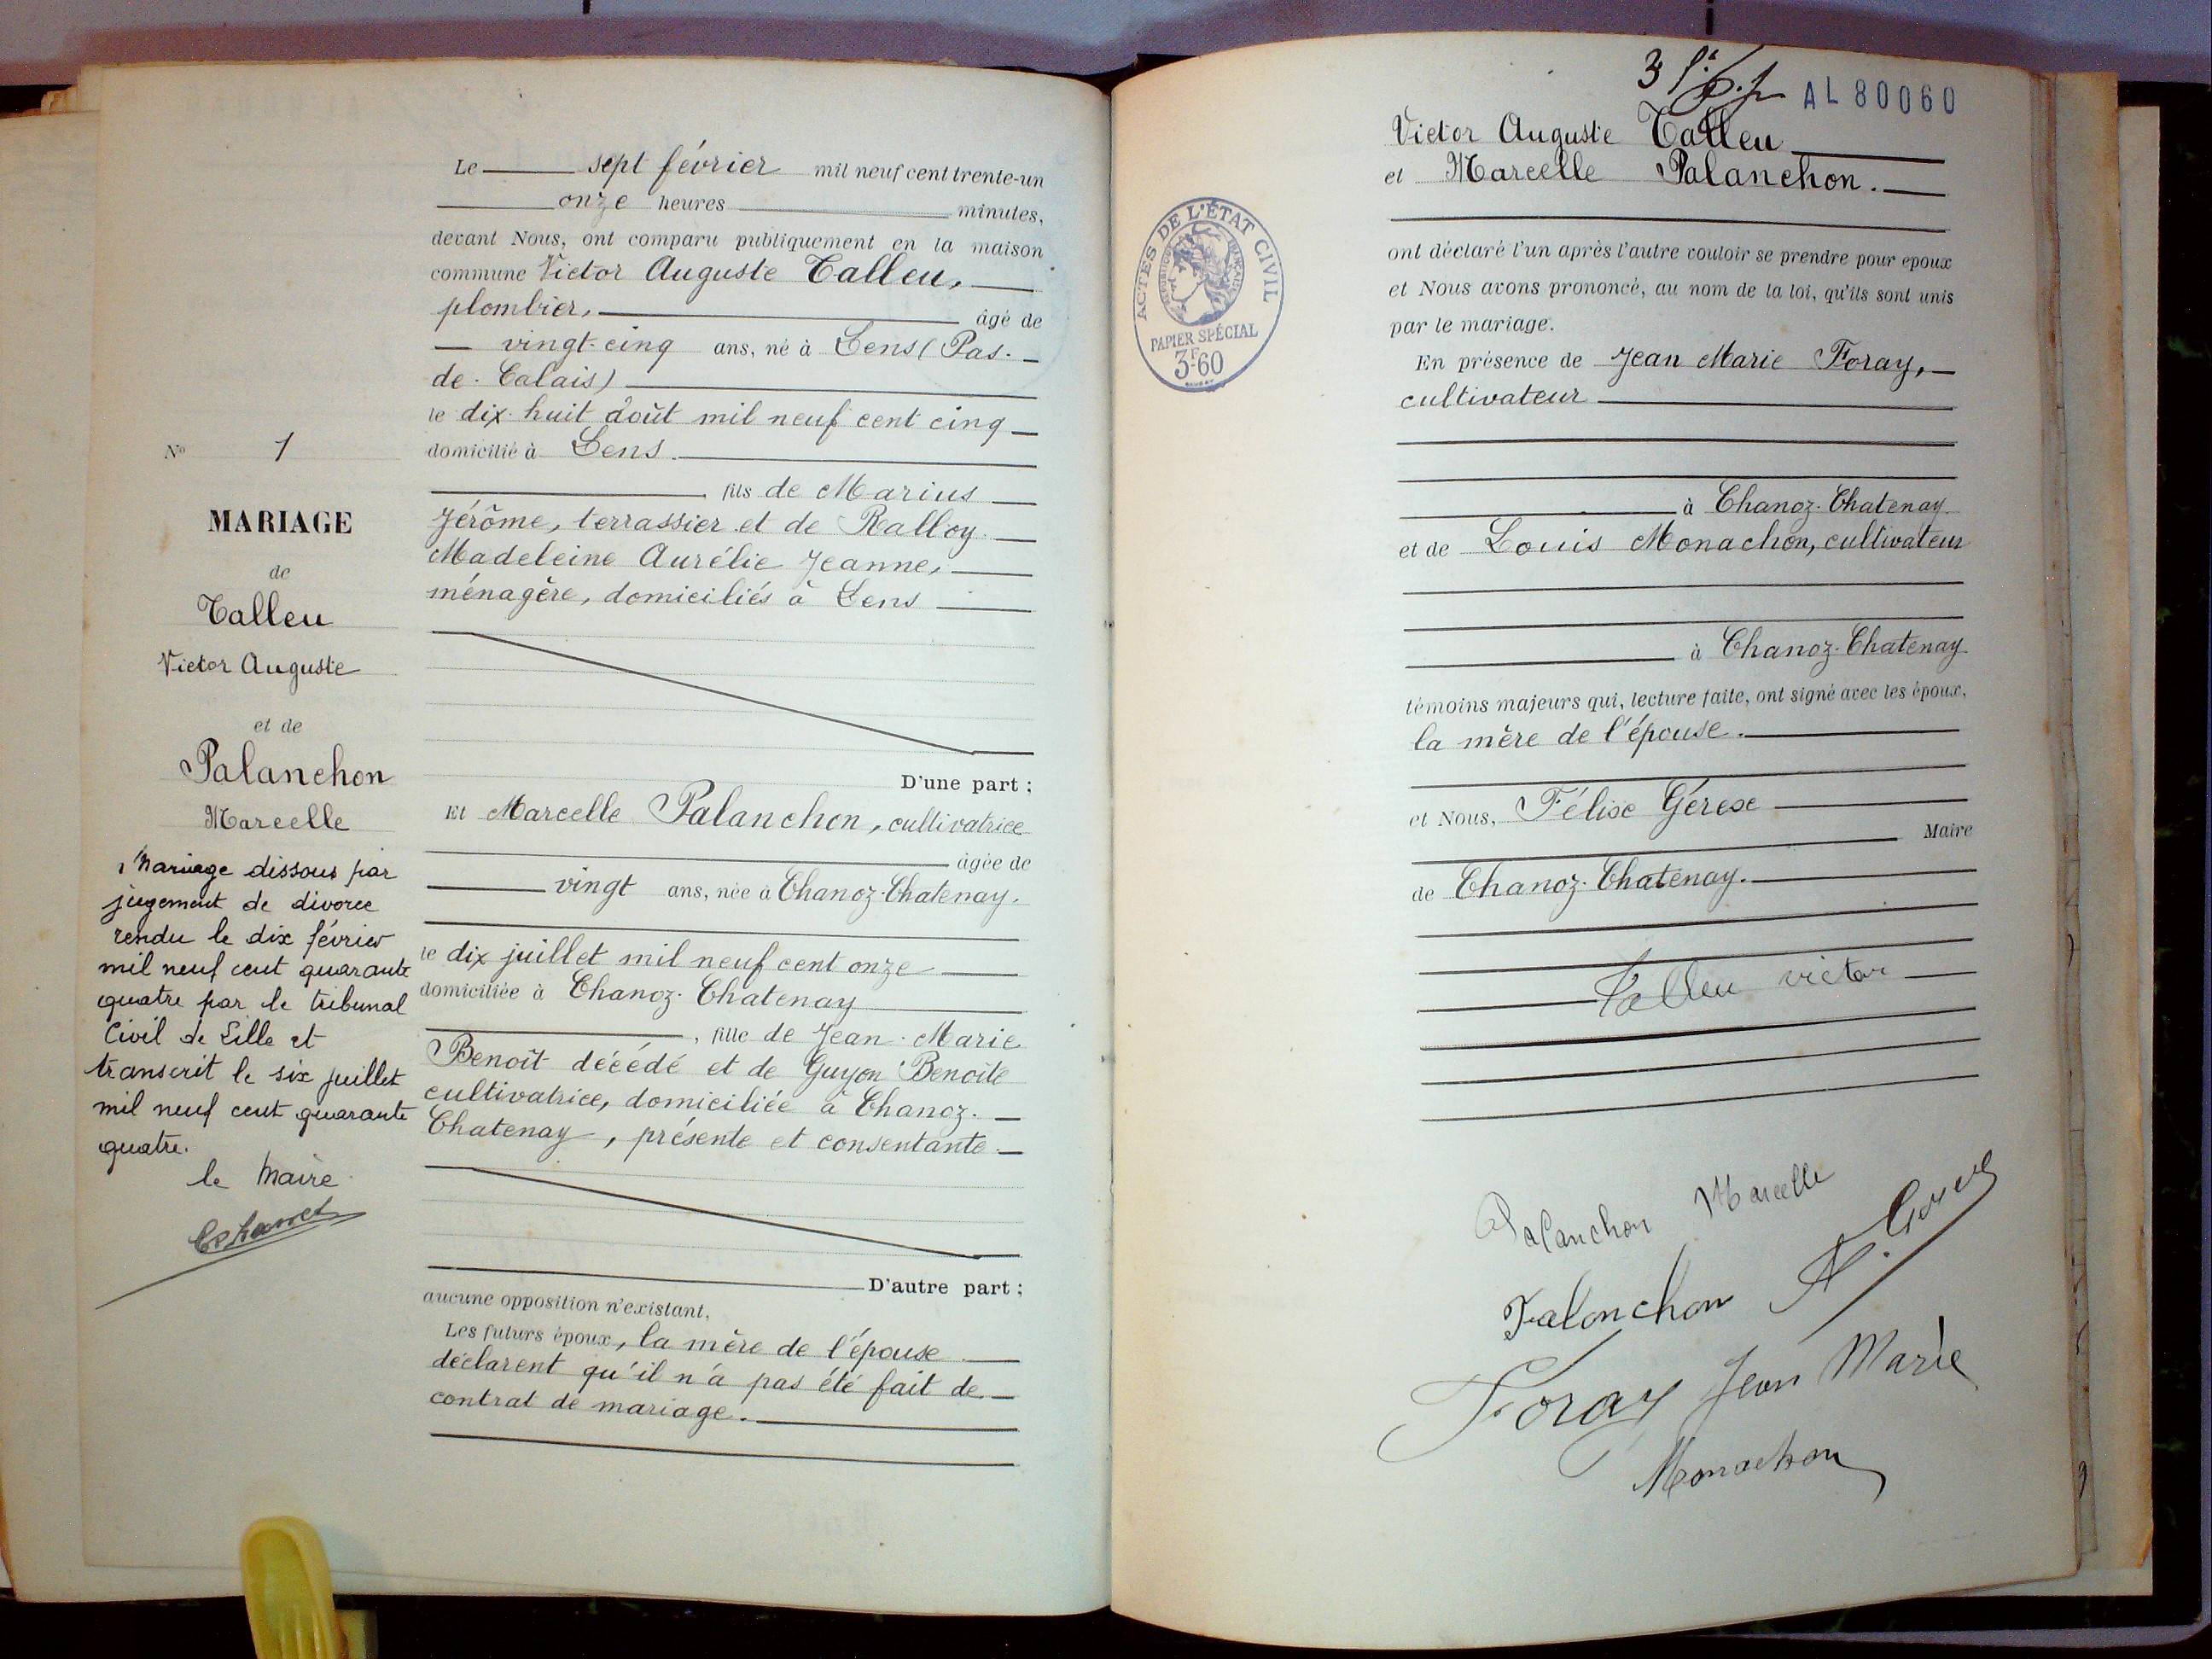 Le sept février mil neuf cent trente-un
onze heures minutes,
devant Nous, ont comparu publiquement en la maison
commune Victor Auguste Talleu,
plombier, âgé de
vingt-cinq ans, né à Lens (Pas-
de-Calais)
le dix-huit août mil neuf cent cinq
domicilié à Lens.
fils de Marius
Jérôme, terrassier et de Ralloy
Madeleine Aurélie Jeanne,
ménagère, domiciliés à Lens
D'une part ;
Et Marcelle Palanchon, cultivatrice
âgée de
vingt ans, née à Chanoz-Chatenay.
le dix juillet mil neuf cent onze
domiciliée à Chanoz-Chatenay
, fille de Jean-Marie
Benoît décédé et de Guyon Benoîte
cultivatrice, domiciliée à Chanoz-
Chatenay, présente et consentante
D'autre part ;
aucune opposition n'existant,
Les futurs époux, la mère de l'épouse
déclarent qu'il n'a pas été fait de
contrat de mariage.
No 1
MARIAGE
de
Talleu
Victor Auguste
et de
Palanchon
Marcelle
Mariage dissous par
jugement de divorce
rendu le dix février
mil neuf cent quarante
quatre par le tribunal
Civil de Lille et
transcrit le six juillet
mil neuf cent quarante
quatre.
le Maire
AL 80060
Victor Auguste Talleu
et Marcelle Palanchon.
ACTES DE L'ÉTAT CIVIL
RÉPUBLIQUE FRANÇAISE
PAPIER SPÉCIAL
3F60
ont déclaré l'un après l'autre vouloir se prendre pour époux
et Nous avons prononcé, au nom de la loi, qu'ils sont unis
par le mariage.
En présence de Jean Marie Foray,
cultivateur
à Chanoz-Chatenay
et de Louis Monachon, cultivateur
à Chanoz-Chatenay
témoins majeurs qui, lecture faite, ont signé avec les époux,
la mère de l'épouse.
et Nous, Félix Gérex
Maire
de Chanoz-Chatenay.
Talleu victor
Palanchon Marcelle
Palonchon
Foray Jean Marie
Monachon